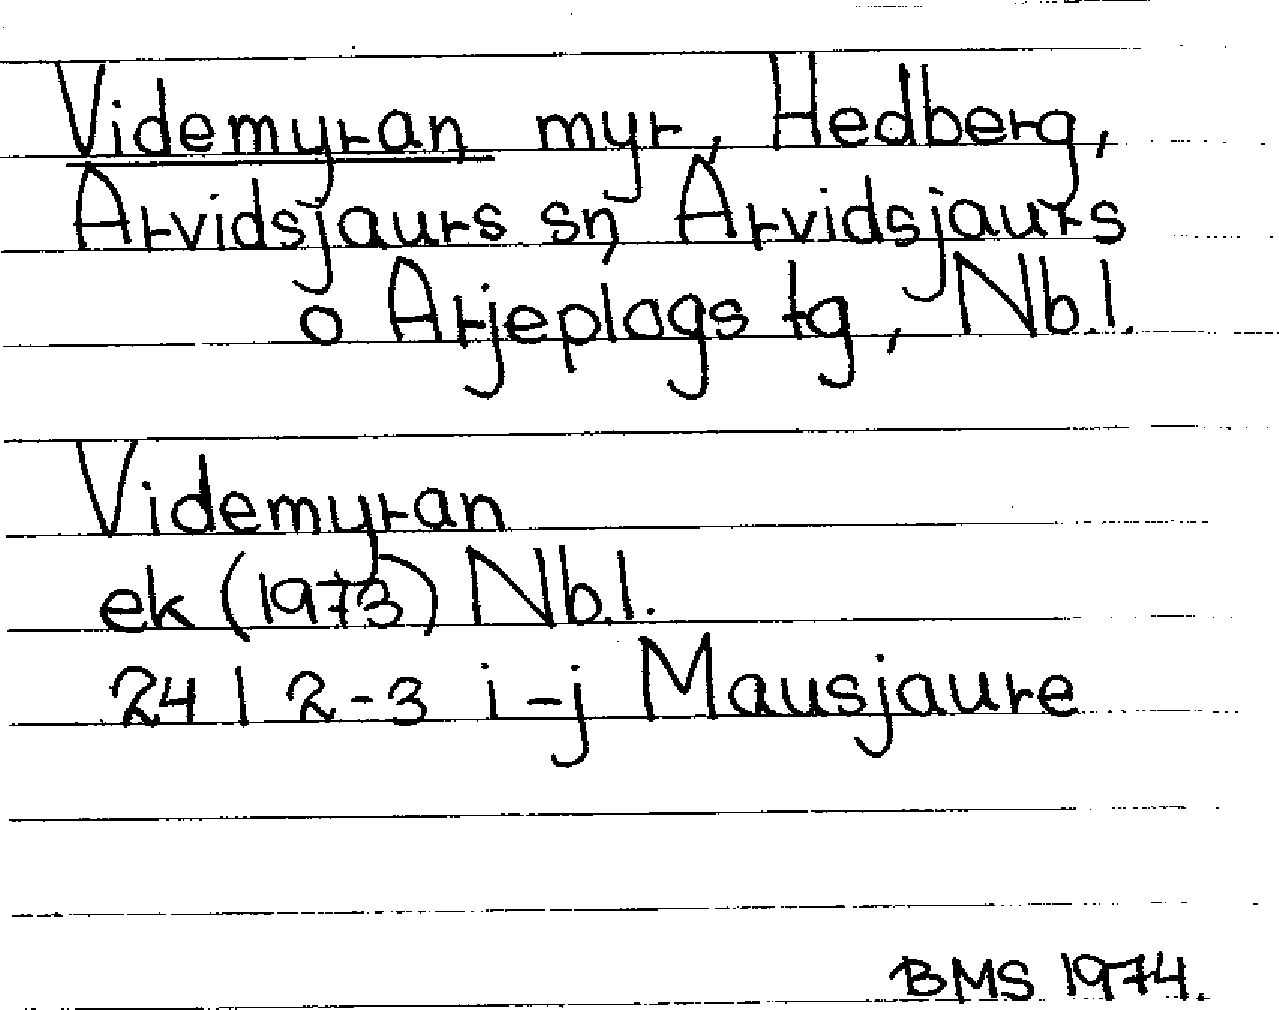 Videmyran myr, Hedberg,
Arvidsjaurs sn, Arvidsjaurs
o Arjeplogs tg, Nb.l.
Videmyran
ek (1973) Nb.l.
24 I 2-3 i-j Mausjaure
BMS 1974.